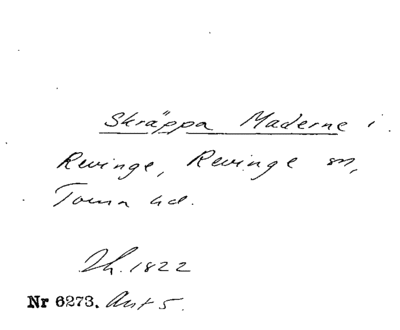 Skräppa Maderne i
Revinge, Revinge sn,
Torna hd.
Lh. 1822
Nr 6273. Ant 5.